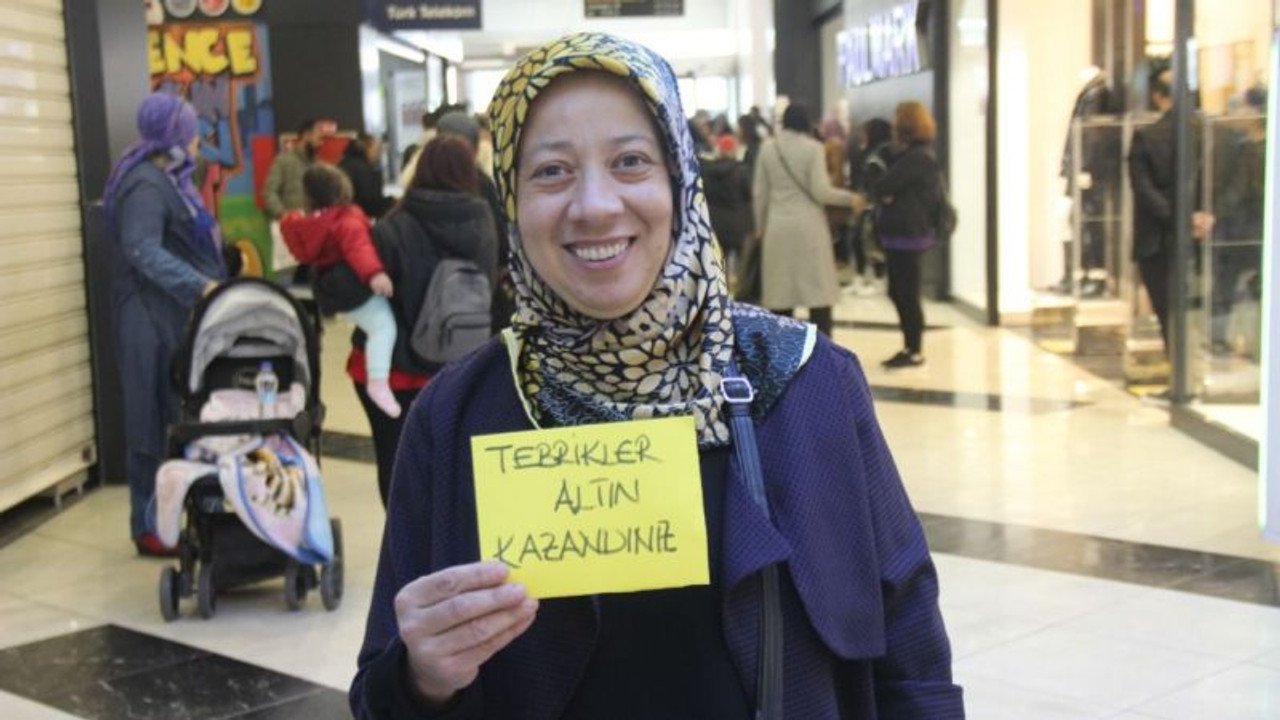 ENCE
Türk Telekom
TEBRİKLER
ALTIN
KAZANDINIZ